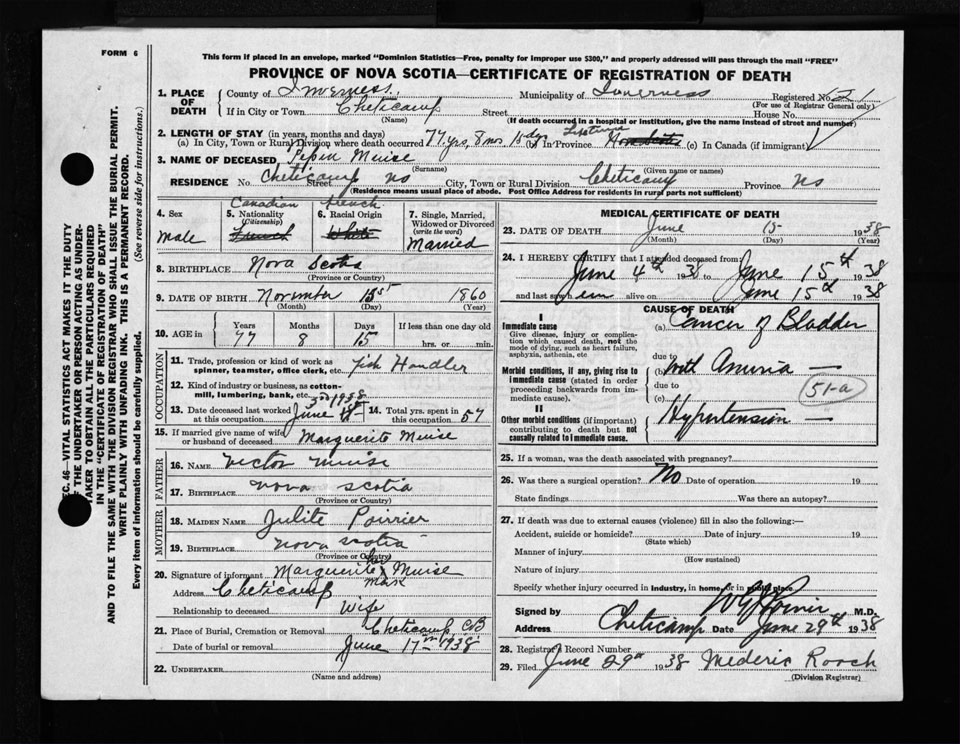 FORM 6
This form if placed in an envelope, marked "Dominion Statistics—Free, penalty for improper use $300," and properly addressed will pass through the mail "FREE"
PROVINCE OF NOVA SCOTIA—CERTIFICATE OF REGISTRATION OF DEATH
SEC. 46—VITAL STATISTICS ACT MAKES IT THE DUTY
OF THE UNDERTAKER OR PERSON ACTING AS UNDER-
TAKER TO OBTAIN ALL THE PARTICULARS REQUIRED
IN THE "CERTIFICATE OF REGISTRATION OF DEATH"
AND TO FILE THE SAME WITH THE DIVISION REGISTRAR WHO SHALL ISSUE THE BURIAL PERMIT.
WRITE PLAINLY WITH UNFADING INK. THIS IS A PERMANENT RECORD.
Every item of information should be carefully supplied. (See reverse side for instructions.)
1. PLACE OF DEATH County of Inverness. Municipality of Inverness Registered No. 1521
(For use of Registrar General only)
If in City or Town Cheticamp Street House No.
(Name) (If death occurred in a hospital or institution, give the name instead of street and number)
2. LENGTH OF STAY (in years, months and days)
(a) In City, Town or Rural Division where death occurred 77 yrs, 8 mos 15 dys (b) In Province Lifetime (c) In Canada (if immigrant)
3. NAME OF DECEASED Pepin Muise
(Surname) (Given name or names)
RESIDENCE No. Cheticamp Street NS City, Town or Rural Division Cheticamp Province NS
(Residence means usual place of abode. Post Office Address for residents in rural parts not sufficient)
4. Sex Male
5. Nationality (Citizenship) Canadian French
6. Racial Origin French White
7. Single, Married, Widowed or Divorced (write the word) Married
8. BIRTHPLACE Nova Scotia
(Province or Country)
9. DATE OF BIRTH November 1st 1860
(Month) (Day) (Year)
10. AGE in Years 77 Months 8 Days 15 If less than one day old hrs. or min.
OCCUPATION
11. Trade, profession or kind of work as spinner, teamster, office clerk, etc. Fish Handler
12. Kind of industry or business, as cotton-mill, lumbering, bank, etc.
13. Date deceased last worked at this occupation June 3rd 1938
14. Total yrs. spent in this occupation 57
15. If married give name of wife or husband of deceased Marguerite Muise
FATHER
16. NAME Victor Muise
17. BIRTHPLACE Nova Scotia
(Province or Country)
MOTHER
18. MAIDEN NAME Julite Poirrier
19. BIRTHPLACE Nova Scotia
(Province or Country)
20. Signature of informant Marguerite her X mark Muise
Address Cheticamp
Relationship to deceased Wife
21. Place of Burial, Cremation or Removal Cheticamp, CB
Date of burial or removal June 17th 1938
22. UNDERTAKER
(Name and address)
MEDICAL CERTIFICATE OF DEATH
23. DATE OF DEATH June 15 1938
(Month) (Day) (Year)
24. I HEREBY CERTIFY that I attended deceased from:
June 4th 1938 to June 15th 1938
and last saw him alive on June 15th 1938
CAUSE OF DEATH
I
Immediate cause
Give disease, injury or complication which caused death, not the mode of dying, such as heart failure, asphyxia, asthenia, etc
(a) Cancer of Bladder
due to
Morbid conditions, if any, giving rise to immediate cause (stated in order proceeding backwards from immediate cause).
(b) with Anuria —
due to
(c) 51-a
II
Other morbid conditions (if important) contributing to death but not causally related to immediate cause.
Hypertension —
25. If a woman, was the death associated with pregnancy?
26. Was there a surgical operation? No Date of operation 19
State findings Was there an autopsy?
27. If death was due to external causes (violence) fill in also the following:—
Accident, suicide or homicide? Date of injury 19
(State which)
Manner of injury
(How sustained)
Nature of injury
Specify whether injury occurred in industry, in home, or in public place.
Signed by M.D.
Address Cheticamp Date June 29th 1938
28. Registrar's Record Number
29. Filed June 29th 1938 Mederic Roach
(Division Registrar)